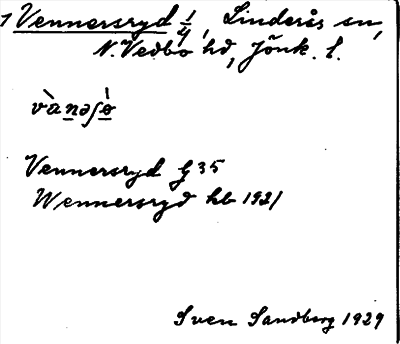 1 Vennersryd 1/4, Linderås sn,
N. Vedbo hd, Jönk. l.
vànəʃò
Vennersryd G 35
Wennersryd hb 1921
Sven Sandberg 1929